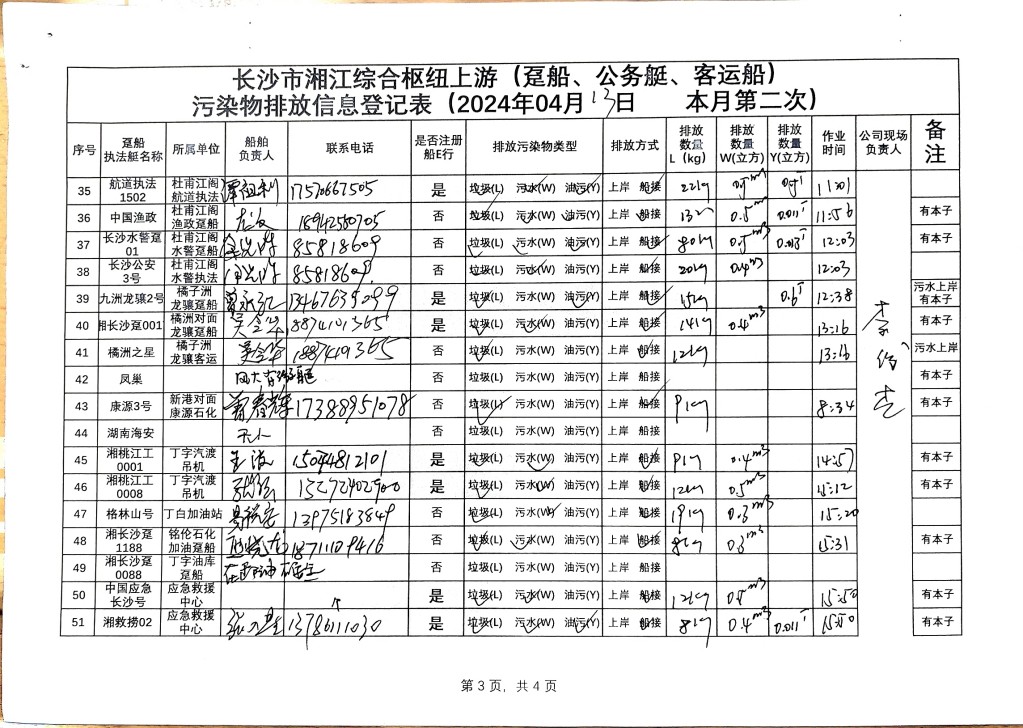 长沙市湘江综合枢纽上游（趸船、公务艇、客运船）
污染物排放信息登记表（2024年04月13日 本月第二次）
序号 趸船执法艇名称 所属单位 船舶负责人 联系电话 是否注册船E行 排放污染物类型 排放方式 排放数量L（kg） 排放数量W(立方) 排放数量Y(立方) 作业时间 公司现场负责人 备注
35 航道执法1502 杜甫江阁航道执法 17570667505 是 垃圾(L) 污水(W) 油污(Y) 上岸 船接 22kg 11:01
36 中国渔政 杜甫江阁渔政趸船 18942580705 否 垃圾(L) 污水(W) 油污(Y) 上岸 船接 11:56 有本子
37 长沙水警趸01 杜甫江阁水警趸船 85818609 否 垃圾(L) 污水(W) 油污(Y) 上岸 船接 80kg 12:03 有本子
38 长沙公安3号 杜甫江阁水警执法 85818609 否 垃圾(L) 污水(W) 油污(Y) 上岸 船接 20kg 0.4m³ 12:03
39 九洲龙骧2号 橘子洲龙骧趸船 13467639099 是 垃圾(L) 污水(W) 油污(Y) 上岸 船接 15kg 12:38 污水上岸有本子
40 湘长沙趸001 橘洲对面龙骧趸船 是 垃圾(L) 污水(W) 油污(Y) 上岸 船接 14kg 0.4m³ 13:16 有本子
41 橘洲之星 橘子洲龙骧客运 是 垃圾(L) 污水(W) 油污(Y) 上岸 船接 12kg 13:16 污水上岸
42 凤巢 否 垃圾(L) 污水(W) 油污(Y) 上岸 船接 有本子
43 康源3号 新港对面康源石化 17388951078 否 垃圾(L) 污水(W) 油污(Y) 上岸 船接 9kg 8:34 有本子
44 湖南海安 无人 否 垃圾(L) 污水(W) 油污(Y) 上岸 船接
45 湘桃江工0001 丁字汽渡吊机 是 垃圾(L) 污水(W) 油污(Y) 上岸 船接 9kg 0.4m³ 14:57 有本子
46 湘桃江工0008 丁字汽渡吊机 是 垃圾(L) 污水(W) 油污(Y) 上岸 船接 12kg 0.5m³ 15:12 有本子
47 格林山号 丁白加油站 13975183849 是 垃圾(L) 污水(W) 油污(Y) 上岸 船接 19kg 0.3m³ 15:20 有本子
48 湘长沙趸1188 铭伦石化加油趸船 18711109416 是 垃圾(L) 污水(W) 油污(Y) 上岸 船接 8kg 0.3m³ 15:31 有本子
49 湘长沙趸0088 丁字油库趸船 否 垃圾(L) 污水(W) 油污(Y) 上岸 船接
50 中国应急长沙号 应急救援中心 是 垃圾(L) 污水(W) 油污(Y) 上岸 船接 12kg 15:50 有本子
51 湘救捞02 应急救援中心 13786111030 是 垃圾(L) 污水(W) 油污(Y) 上岸 船接 8kg 0.4m³ 15:50 有本子
第 3 页，共 4 页